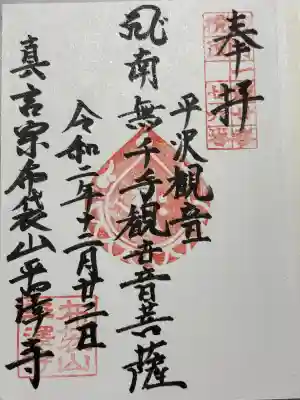 奉拝
平沢観音
南無千手観世音菩薩
令和二年十二月廿二日
真言宗布袋山平澤寺